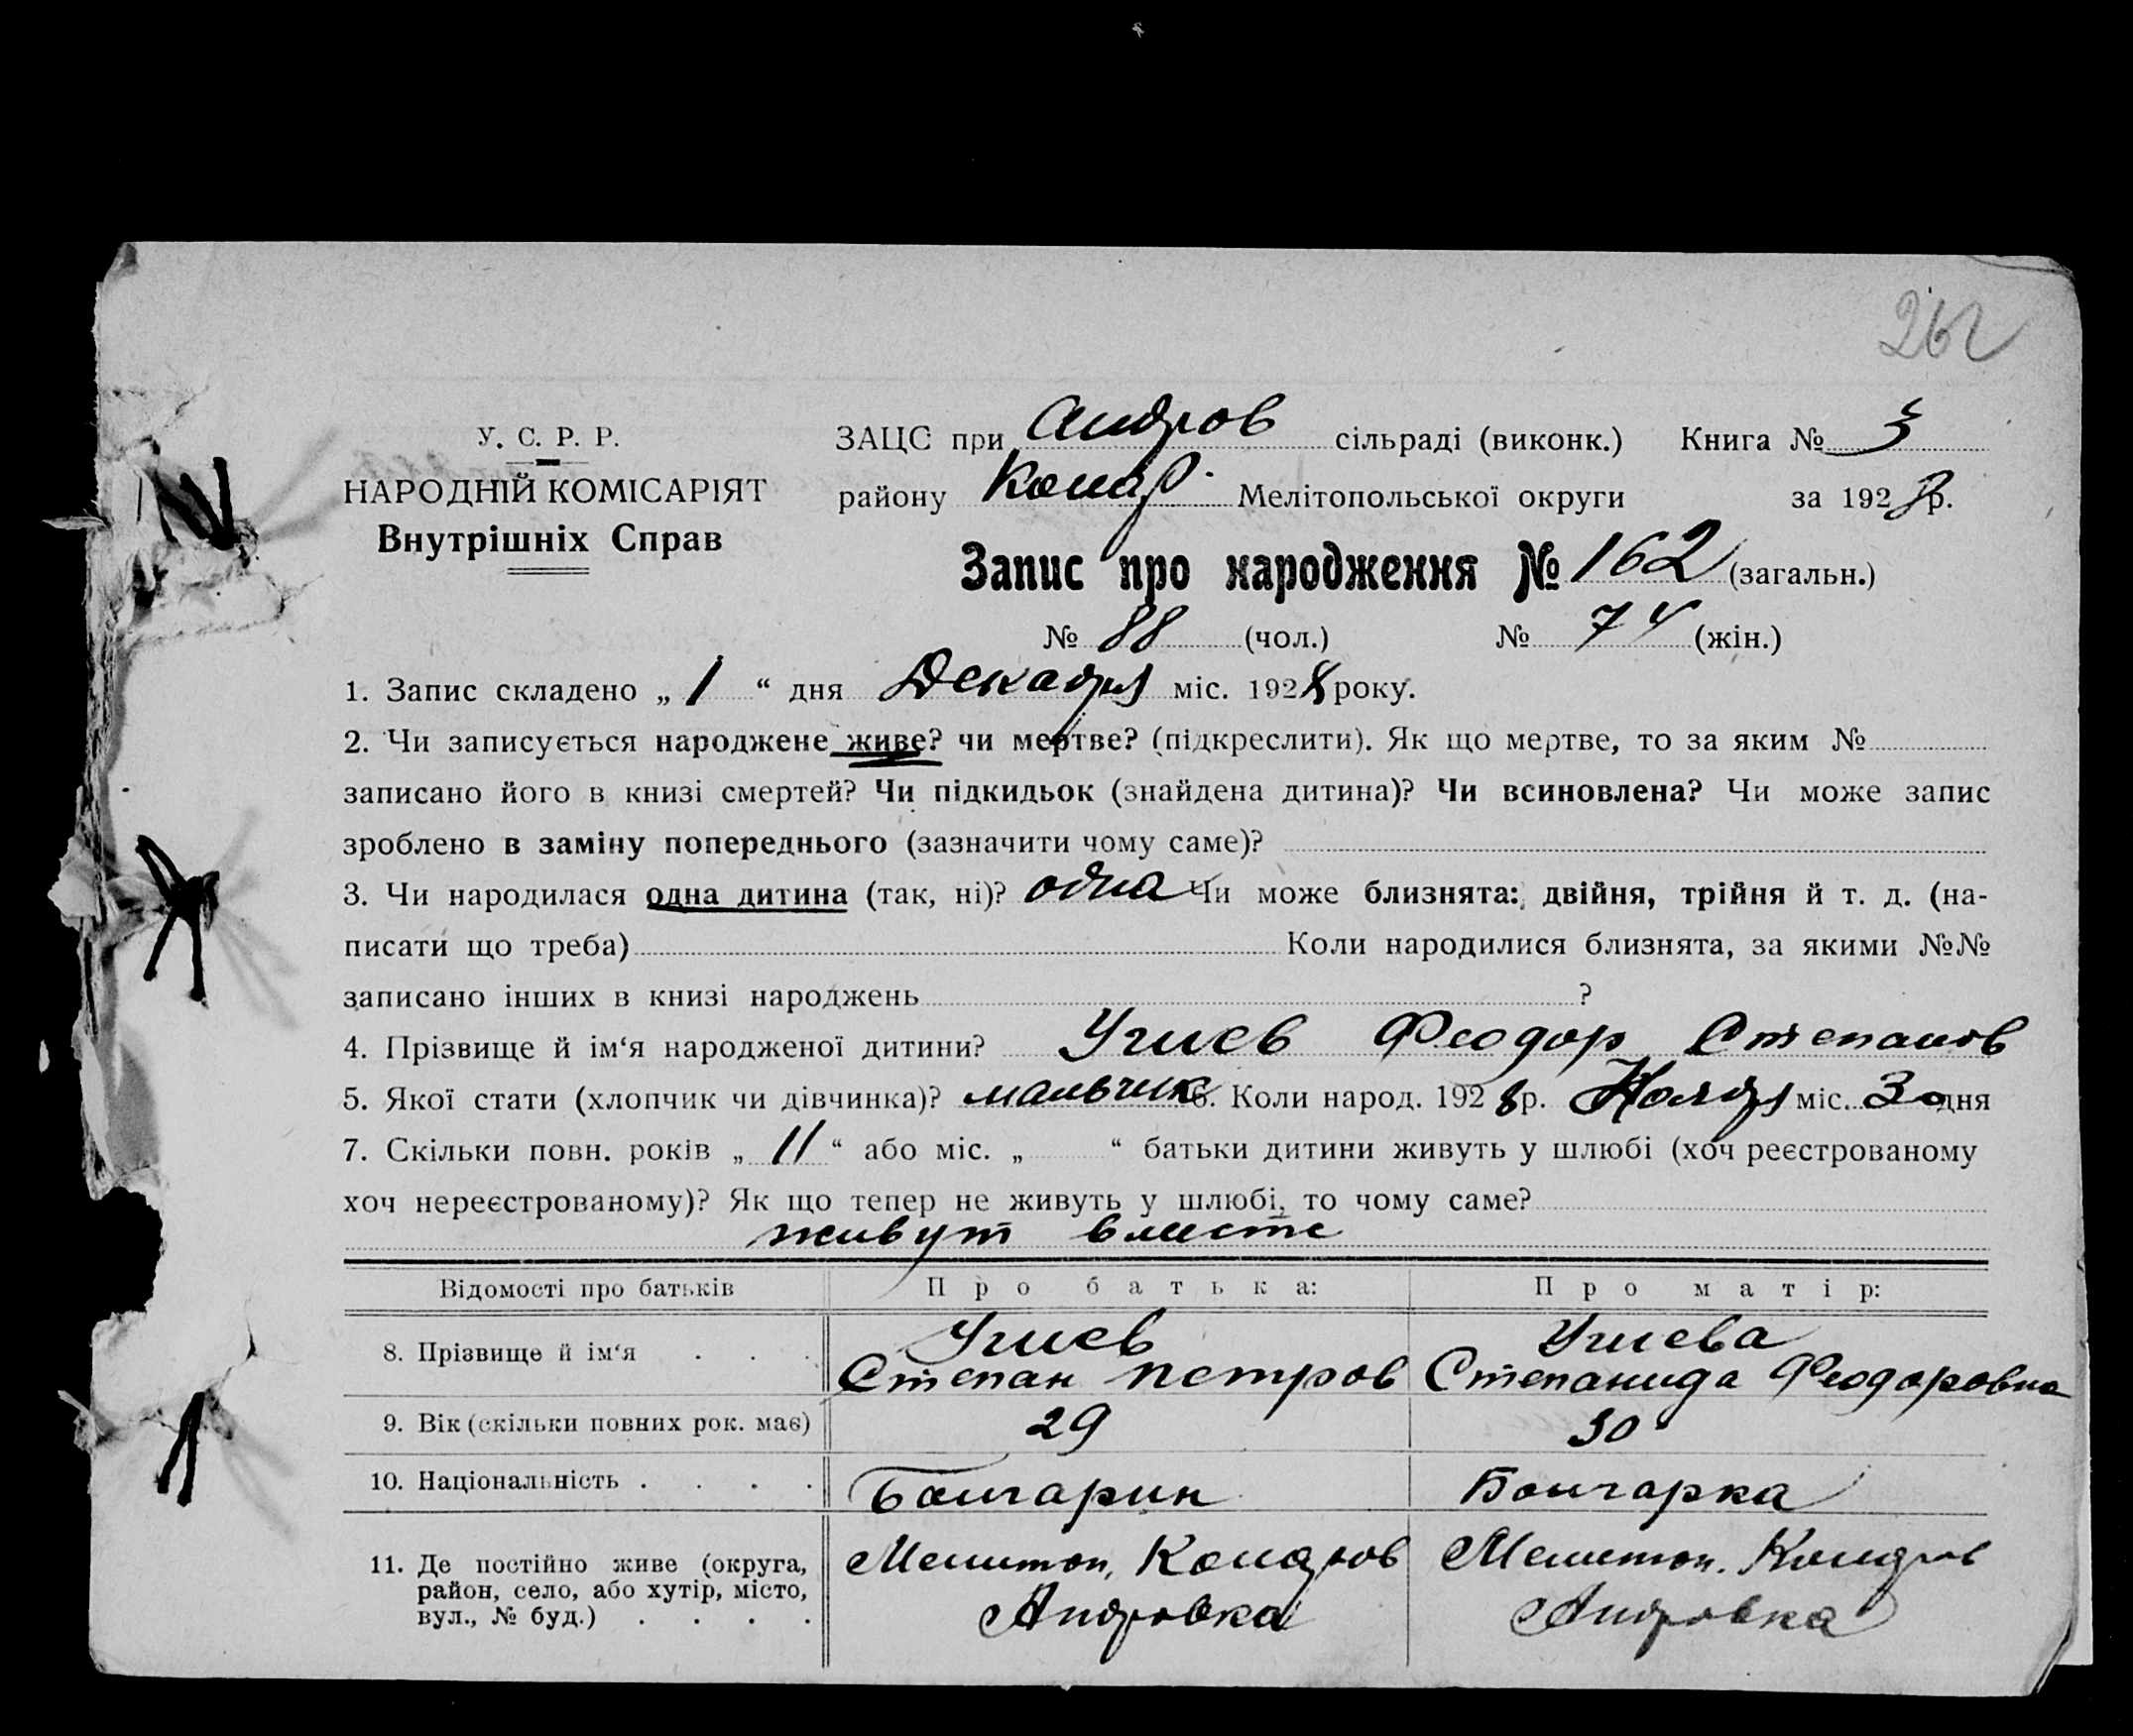 262
У. С. Р. Р.
НАРОДНІЙ КОМІСАРІЯТ
Внутрішніх Справ
ЗАЦС при Андров сільраді (виконк.) Книга № 3
району Комар. Мелітопольської округи за 1928 р.
Запис про народження № 162 (загальн.)
№ 88 (чол.) № 74 (жін.)
1. Запис складено „ 1 “ дня Декабря міс. 1928 року.
2. Чи записується народжене живе? чи мертве? (підкреслити). Як що мертве, то за яким №
записано його в книзі смертей? Чи підкидьок (знайдена дитина)? Чи всиновлена? Чи може запис
зроблено в заміну попереднього (зазначити чому саме)?
3. Чи народилася одна дитина (так, ні)? одна Чи може близнята: двійня, трійня й т. д. (на-
писати що треба) Коли народилися близнята, за якими №№
записано інших в книзі народжень ?
4. Прізвище й ім‘я народженої дитини? Узиев Феодор Степанов
5. Якої стати (хлопчик чи дівчинка)? мальчик 6. Коли народ. 1928 р. Ноября міс. 30 дня
7. Скільки повн. років „ 11 “ або міс. „ “ батьки дитини живуть у шлюбі (хоч реєстрованому
хоч нереєстрованому)? Як що тепер не живуть у шлюбі, то чому саме?
живут вместе
Відомості про батьків Про батька: Про матір:
8. Прізвище й ім‘я . . . Узиев Узиева
Степан Петров Степанида Феодоровна
9. Вік (скільки повних рок. має) 29 30
10. Національність . . . . Болгарин Болгарка
11. Де постійно живе (округа, Мелитоп, Комаров Мелитоп. Комаров
район, село, або хутір, місто, Андровка Андровка
вул., № буд.) . . . .